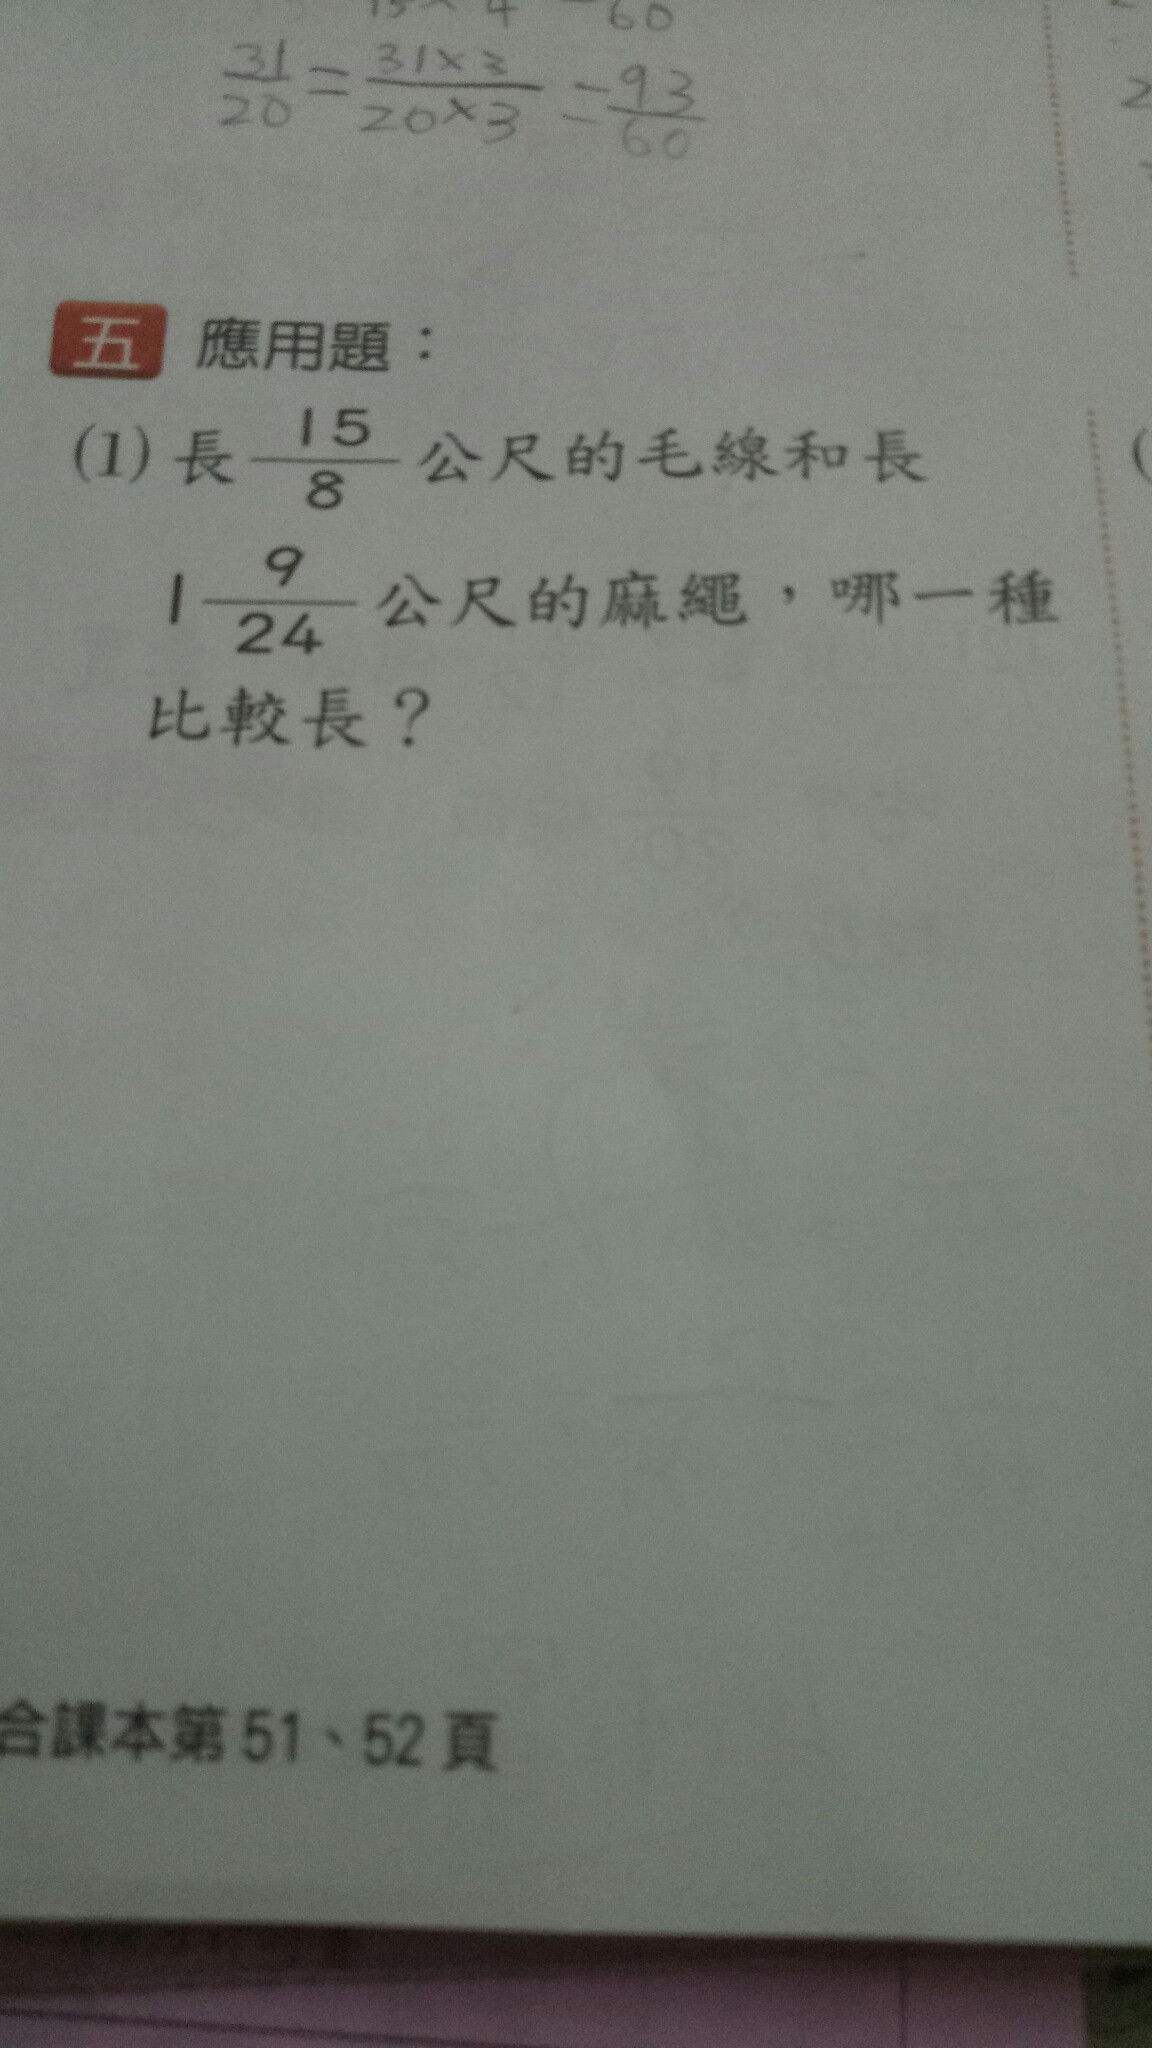 60
31/20 = 31×3/20×3 = 93/60
五 應用題：
(1) 長 15/8 公尺的毛線和長
1 9/24 公尺的麻繩，哪一種
比較長？
合課本第 51、52 頁